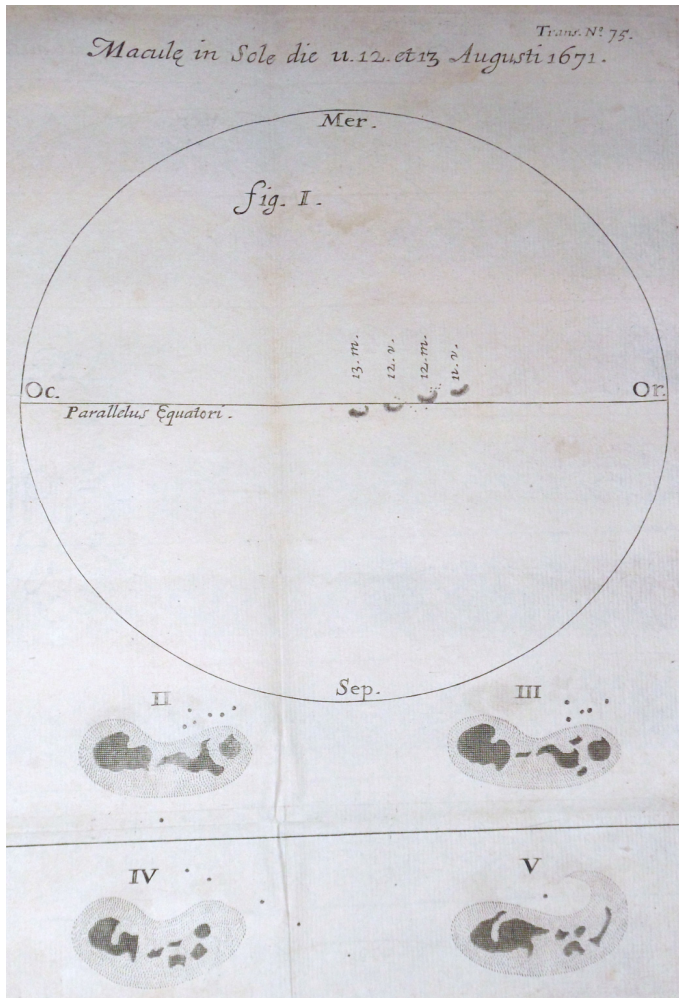 Trans. Nº 75.
Maculę in Sole die 11. 12. et 13 Augusti 1671.
Mer.
fig. I.
13. m.
12. v.
12. m.
11. v.
Oc.
Or.
Parallelus Ęquatori.
Sep.
II
III
IV
V